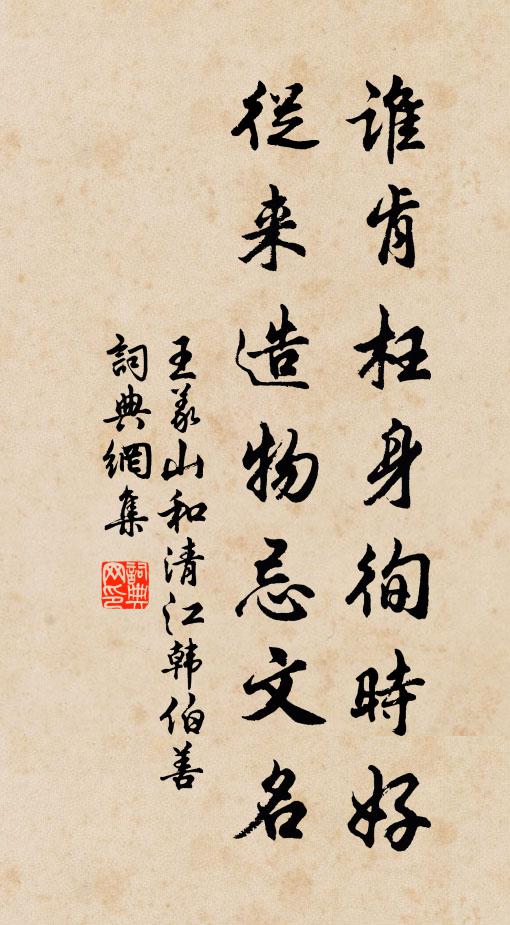 谁肯枉身徇時好
從来造物忌文名
王义山和清江韩伯善
詞典網集
詞典网印